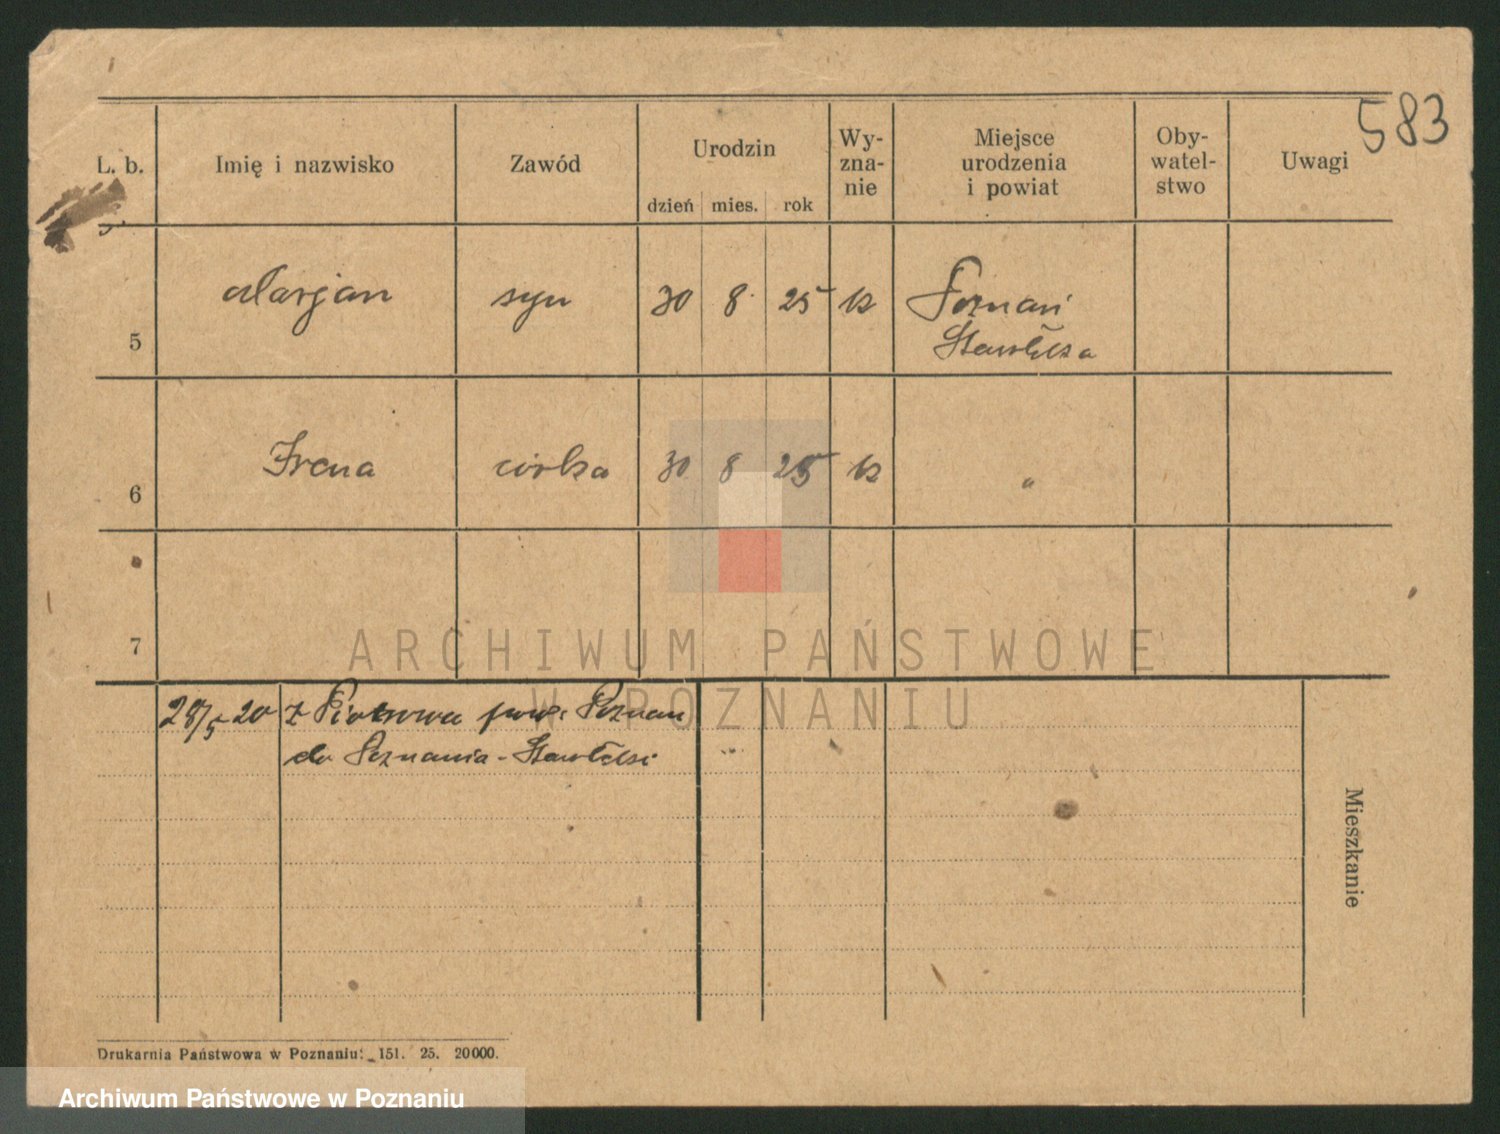 583
L. b. Imię i nazwisko Zawód Urodzin dzień mies. rok Wy-zna-nie Miejsce urodzenia i powiat Oby-watel-stwo Uwagi
5 Marjan syn 30 8 25 k Poznań
Starołęka
6 Irena córka 30 8 25 k "
7
28/5 20 z Piotrowa pow. Poznań
do Poznania - Starołęki
Mieszkanie
Drukarnia Państwowa w Poznaniu: 151. 25. 20000.
ARCHIWUM PAŃSTWOWE
W POZNANIU
Archiwum Państwowe w Poznaniu